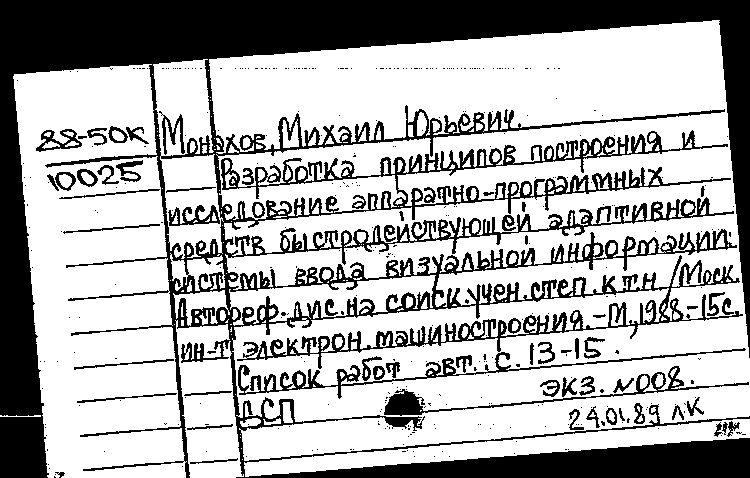 88-50К
10025
Монахов, Михаил Юрьевич.
Разработка принципов построения и
исследование аппаратно-программных
средств быстродействующей адаптивной
системы ввода визуальной информации:
Автореф. дис. на соиск. учен. степ. к.т.н. / Моск.
ин-т электрон. машиностроения. - М., 1988. - 15 с.
Список работ авт.: с. 13-15.
ДСП
экз. №008.
24.01.89 ЛК